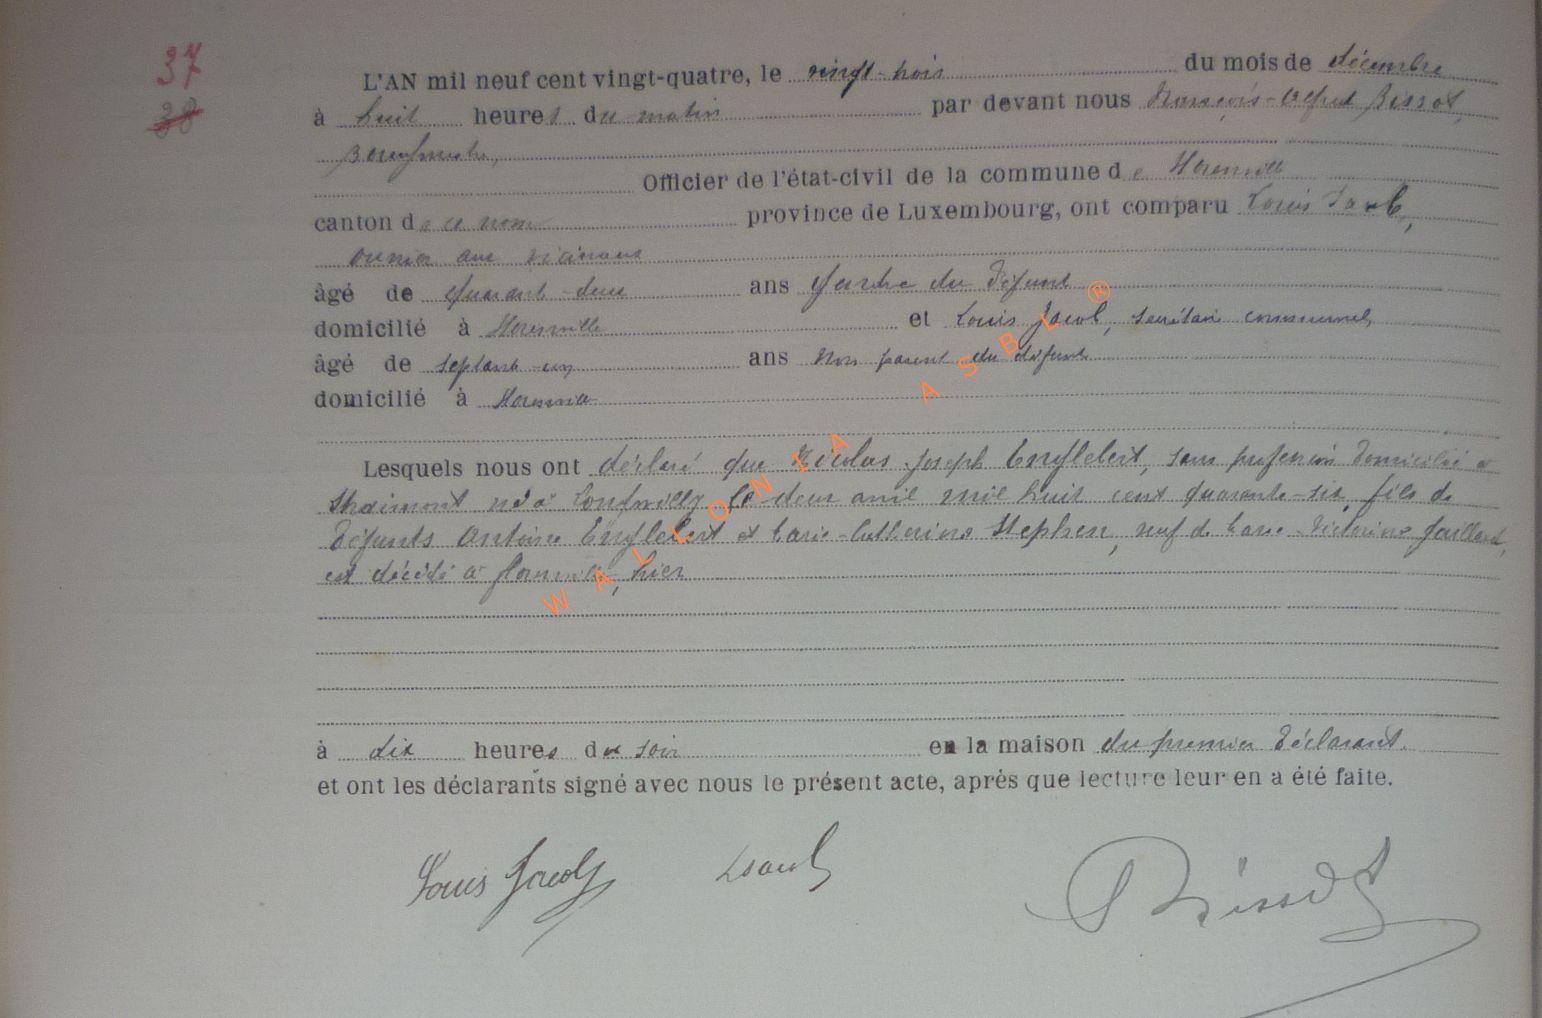 37
38
L'AN mil neuf cent vingt-quatre, le vingt-trois du mois de décembre
à huit heures du matin par devant nous François-Alfred Bissot,
Bourgmestre,
Officier de l'état-civil de la commune de Florenville
canton de ce nom province de Luxembourg, ont comparu Louis
ouvrier aux vicinaux
âgé de quarante-deux ans gendre du défunt
domicilié à Florenville et Louis Jacob, secrétaire communal,
âgé de septante-un ans non parent du défunt
domicilié à Florenville
Lesquels nous ont déclaré que Nicolas Joseph Englebert, sans profession domicilié à
Straimont né à Longwilly le deux avril mil huit cent quarante-six, fils de
défunts Antoine Englebert et Marie-Catherine Stephen, veuf de Marie-Victorine
est décédé à Florenville, hier
à dix heures du soir en la maison du premier déclarant.
et ont les déclarants signé avec nous le présent acte, après que lecture leur en a été faite.
Louis Jacob
Bissot
WALLONIA ASBL ®